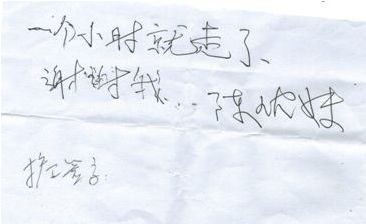 一个小时就走了、
谢谢我... 陈
护士签字: